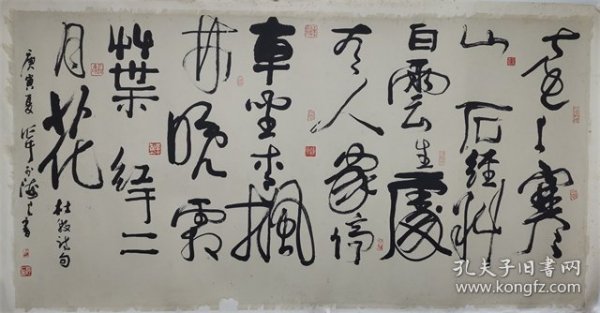 遠上寒
山石徑斜
白雲生處
有人家停
車坐愛楓
林晚霜
葉紅于二
月花
杜牧詩句
庚寅夏
孔夫子旧书网
www.kongfz.com